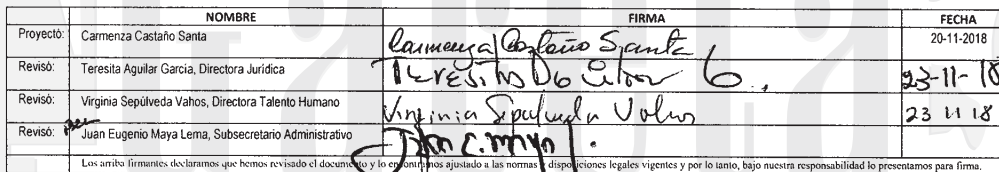 NOMBRE FIRMA FECHA
Proyectó: Carmenza Castaño Santa Carmenza Castaño Santa 20-11-2018
Revisó: Teresita Aguilar García, Directora Jurídica Teresita 23-11-18
Revisó: Virginia Sepúlveda Vahos, Directora Talento Humano Virginia Sepulveda Vahos 23 11 18
Revisó: Juan Eugenio Maya Lema, Subsecretario Administrativo
Los arriba firmantes declaramos que hemos revisado el documento y lo encontramos ajustado a las normas y disposiciones legales vigentes y por lo tanto, bajo nuestra responsabilidad lo presentamos para firma.